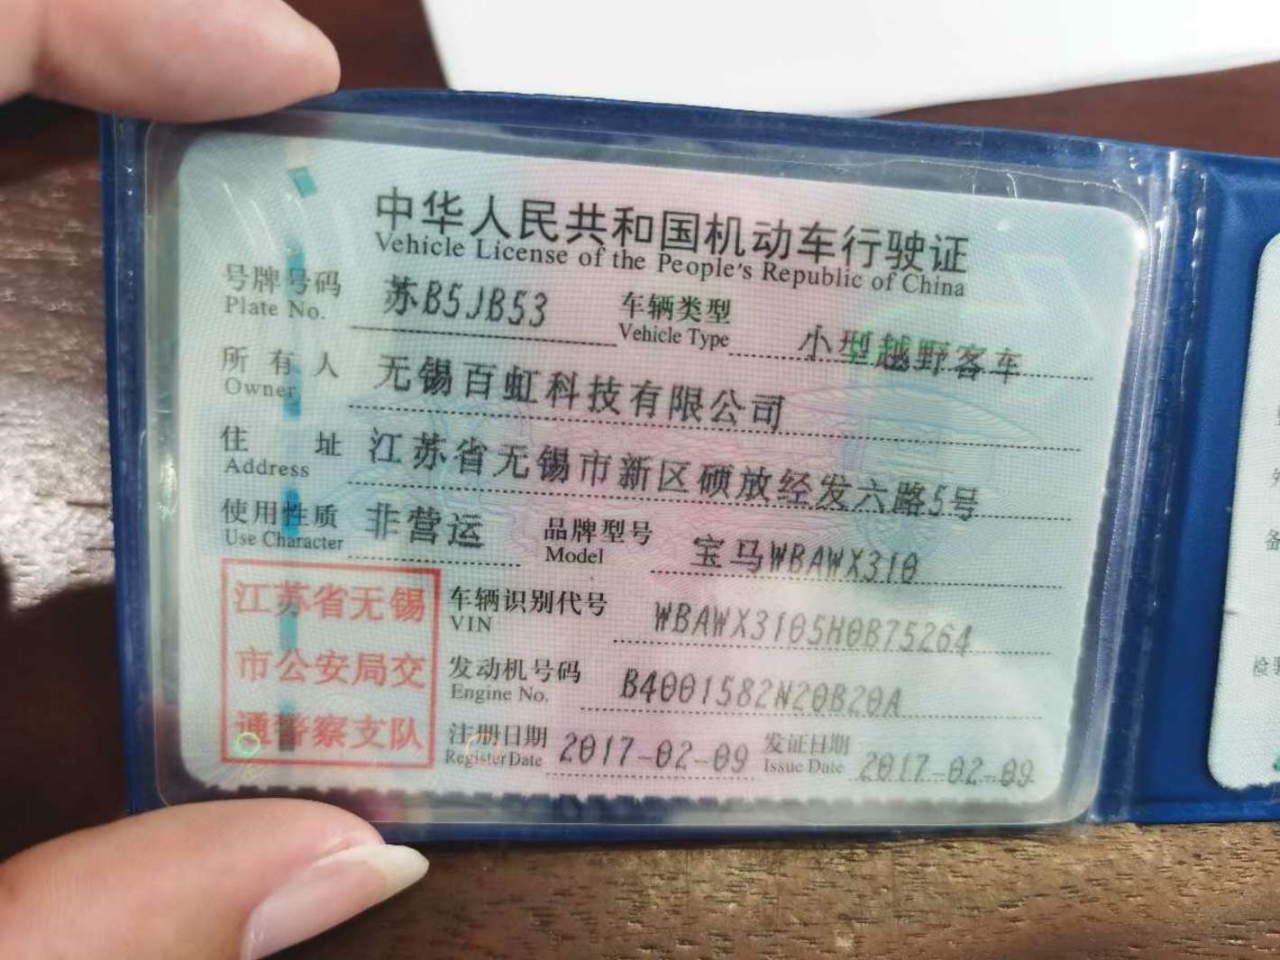 中华人民共和国机动车行驶证
Vehicle License of the People's Republic of China
号牌号码 苏B5JB53 车辆类型 小型越野客车
Plate No. Vehicle Type
所有人 无锡百虹科技有限公司
Owner
住址 江苏省无锡市新区硕放经发六路5号
Address
使用性质 非营运 品牌型号 宝马WBAWX310
Use Character Model
江苏省无锡
市公安局交
通警察支队
车辆识别代号 WBAWX3105H0B75264
VIN
发动机号码 B4001582N20B20A
Engine No.
注册日期 2017-02-09 发证日期 2017-02-09
Register Date Issue Date